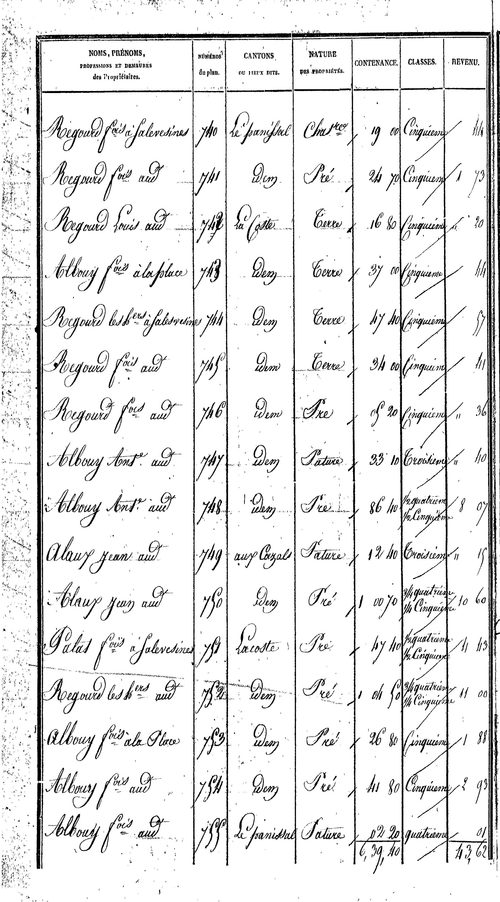 NOMS, PRÉNOMS, PROFESSIONS ET DEMEURES des Propriétaires. NUMÉROS du plan. CANTONS OU LIEUX DITS. NATURE DES PROPRIÉTÉS. CONTENANCE. CLASSES. REVENU.
Regourd fois à Salevesines 740 Le panissal 19 00 Cinquieme 44
Regourd fois aud 741 idem Pré 24 70 Cinquieme 1 73
Regourd Louis aud 742 La Coste Terre 16 80 Cinquieme " 20
Albouy fois à la place 743 idem Terre 37 00 Cinquieme 44
Regourd les hers à Salevesines 744 idem Terre 47 40 Cinquieme 57
Regourd fois aud 745 idem Terre 34 00 Cinquieme 41
Regourd fois aud 746 idem Pre 05 20 Cinquieme " 36
Albouy Ant.e aud 747 idem Pature 33 10 Troisieme " 40
Albouy Ant.e aud 748 idem Pre 86 40 1/2 quatrieme 1/2 Cinquieme 8 07
Alaux jean aud 749 aux Cazals Pature 12 40 Troisieme " 15
Alaux jean aud 750 idem Pré 1 00 70 3/4 quatrieme 1/4 Cinquieme 10 60
Palat fois à Salevesines 751 Lacoste Pre 47 40 1/2 quatrieme 1/2 Cinquieme 4 43
Regourd les hers aud 752 idem Pré 1 04 50 3/4 quatrieme 1/4 Cinquieme 11 00
Albouy fois à la Place 753 idem Pré 26 80 Cinquieme 1 88
Albouy fois aud 754 idem Pré 41 80 Cinquieme 2 93
Albouy fois aud 755 Le panissal Pature 02 20 quatrieme 01
6,39,40 43,62